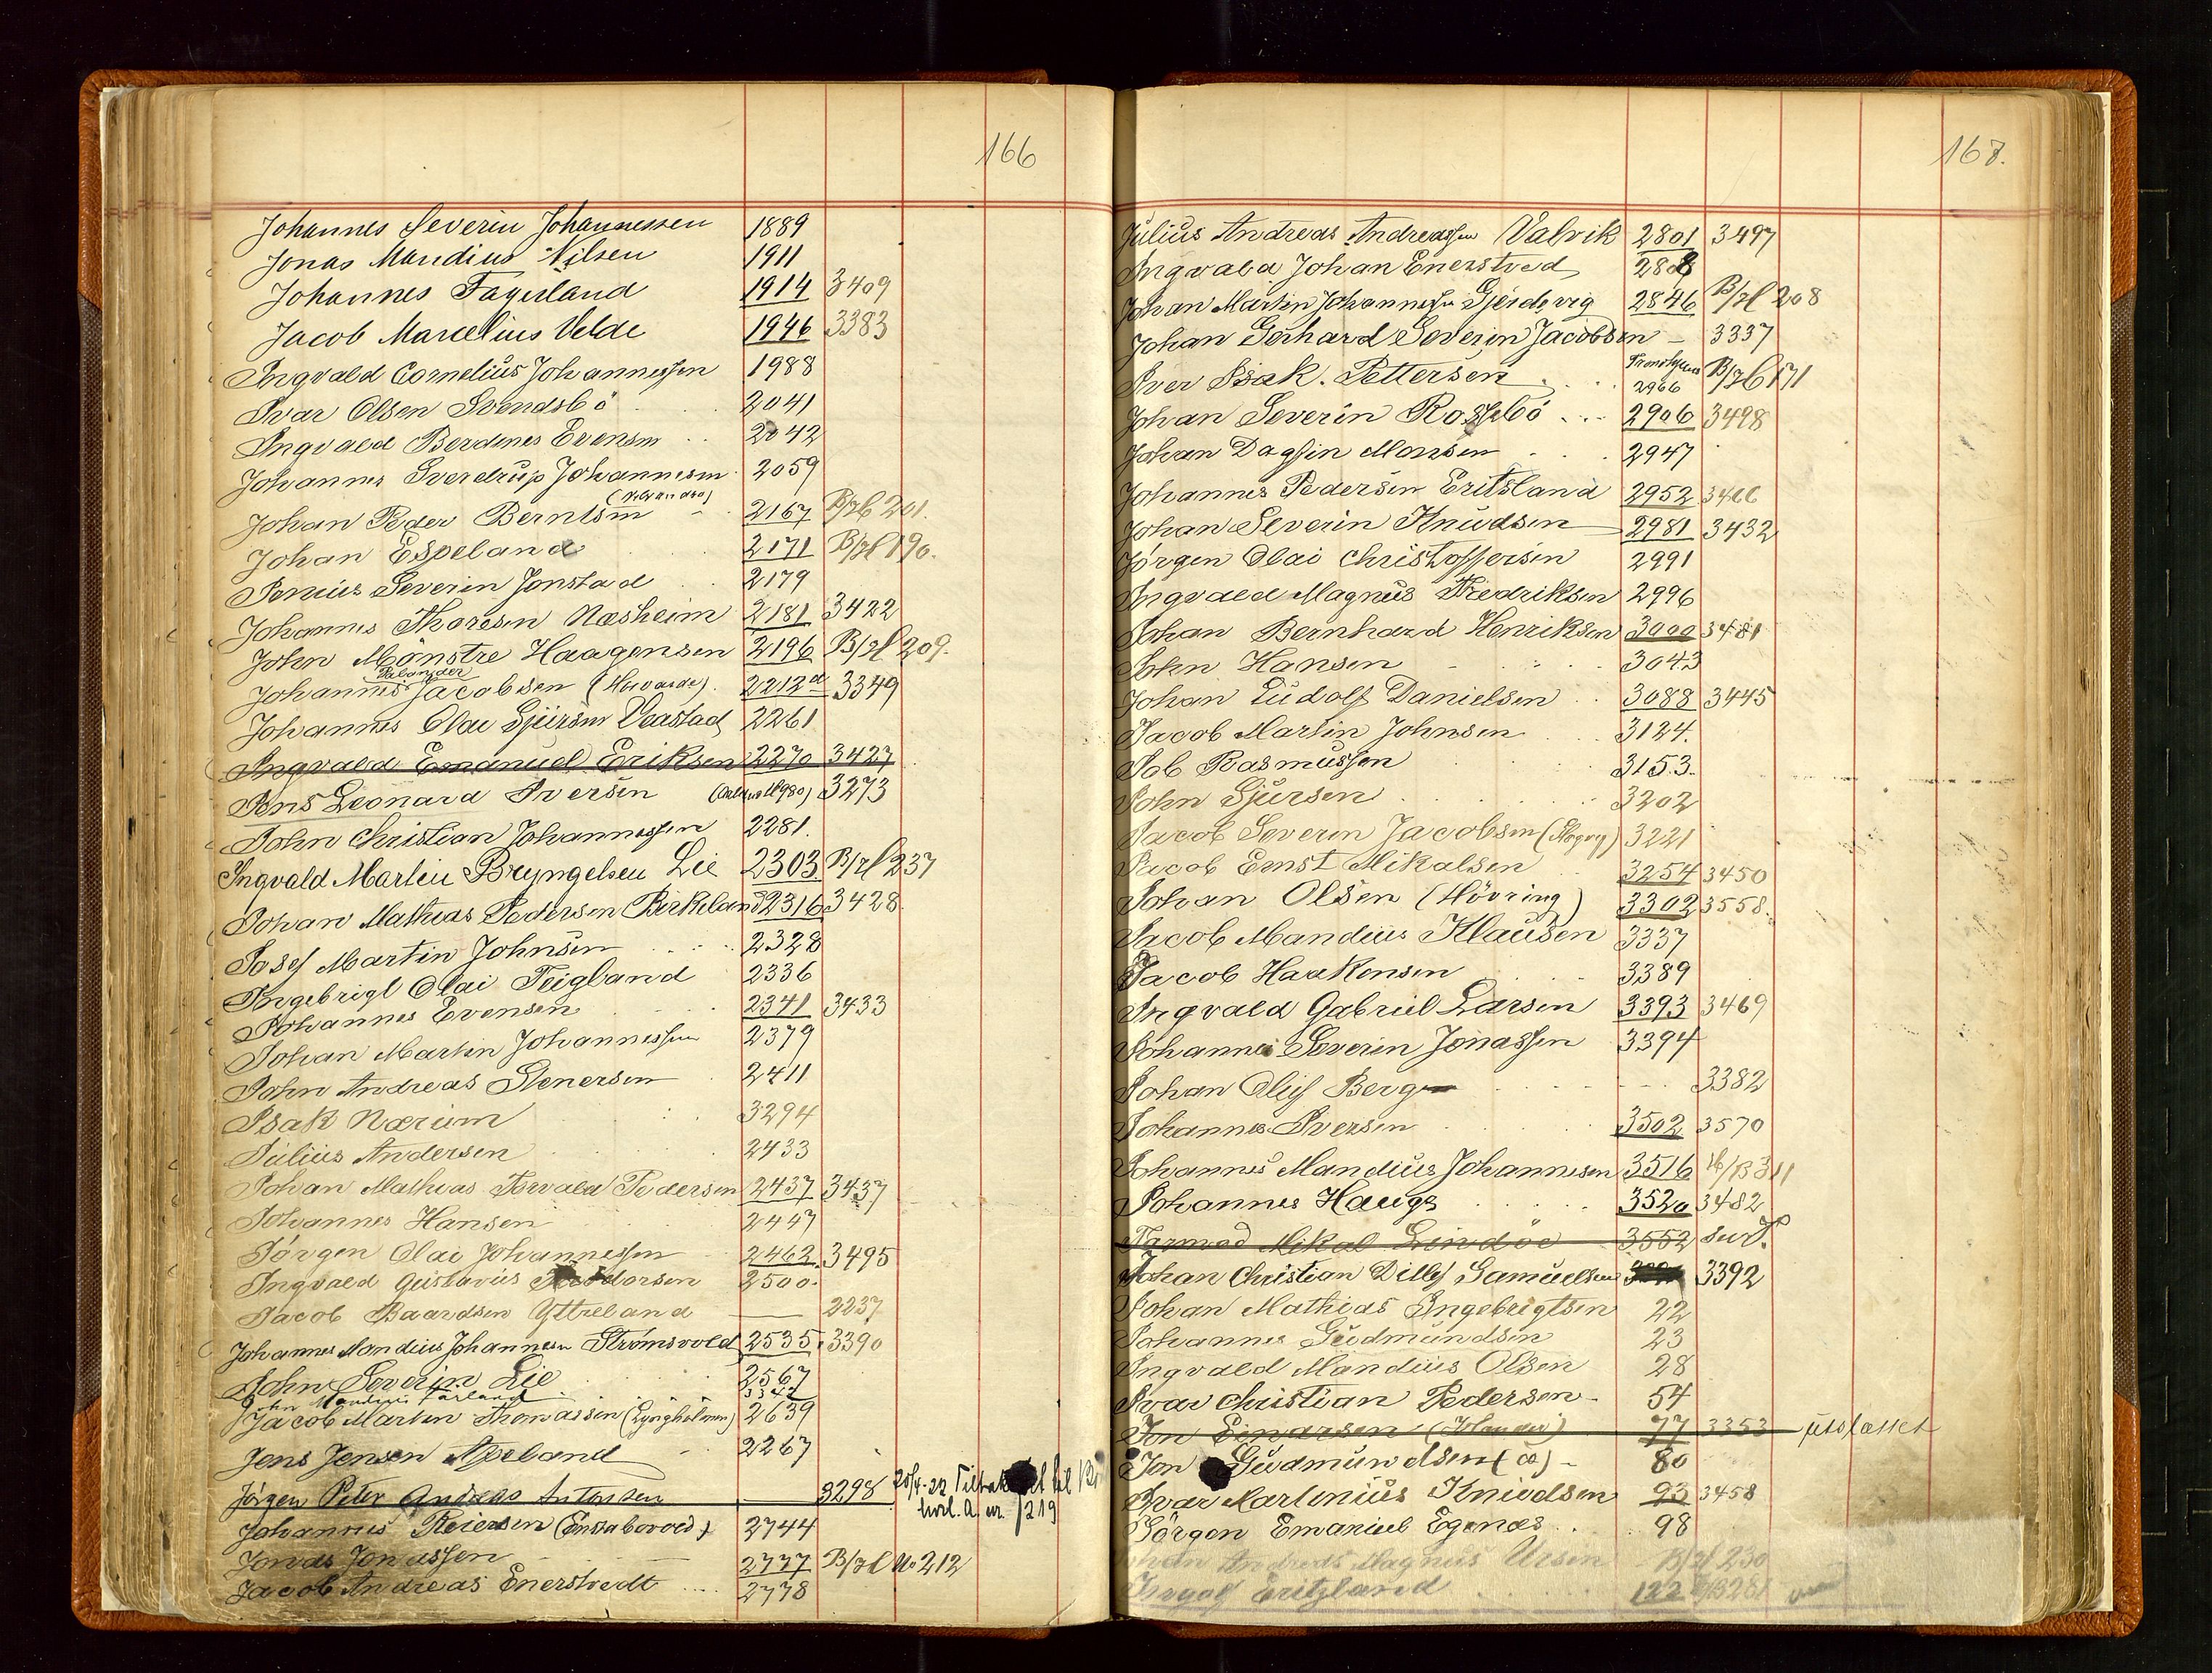 166
Johannes Severin Johannessen 1889
Jonas Mandius Nilsen 1911
Johannes Fagerland 1914 3409
Jacob Marcelius Velde 1946 3383
Ingvald Cornelius Johannessen 1988
Ivar Olsen Svendsbö 2041
Ingvald Berdines Evensen 2042
Johannes Sverdrup Johannesen 2059
Johan Peder Berntsen 2167 B/bl 201.
Johan Espeland 2171 B/bl 190.
Severin Jonstad 2179
Johannes Thoresen Næsheim 2181 3422
John Mönstre Haagensen 2196 B/bl 209.
Johannes Jacobsen 2212d 3349
Johannes Olai Sjursen Veastad 2261
Ingvald Emanuel Eriksen 2270 3427
Jens Leonard Iversen 3273
John Christian Johannessen 2281.
Ingvald Martin Bryngelsen Lie 2303 B/bl 237
Johan Mathias Pedersen Birkeland 2316 3428
Josef Martin Johnsen 2328
Ingebrigt Olai Teigland 2336
Johannes Evensen 2341 3433
Johan Martin Johannessen 2379
John Andreas Stenersen 2411
Isak Nærium 3294
Julius Andersen 2433
Johan Mathias Torvald Pedersen 2437 3437
Johannes Hansen 2447
Jörgen Olai Johannessen 2462. 3495
Ingvald Gustavus 2500.
Jacob Baardsen Yttreland — 2237
Johannes Mandius Johannesen Strömsvold 2535. 3390
John Severin Lie 2567
John Mandius 3342
Jacob Martin Thomassen (Lyngholmen) 2639
Jens Jensen Apeland 2267
Jörgen Peter Andreas Antonsen — 3298 20/4-22
hovd. A. nr. /219
Johannes Reiersen 2744
Jonas Jonassen 2737 B/bl No 212
Jacob Andreas Enerstvedt 2778
167.
Julius Andreas Andreassen Valvik 2801 3497
Ingvald Johan Enerstved 2808
Johan Martin Johannessen Gjerdevig 2846 B/bl 208
Johan Gerhard Severin Jacobsen — 3337
Iver Isak. Pettersen 2966 B/bl 171
Johan Severin Rossebö 2906 3498
Johan Dagfin Monsen 2947
Johannes Pedersen Eritsland 2952 3466
Johan Severin Knudsen 2981 3432
Jörgen Olai Christoffersen 2991
Ingvald Magnus Fredriksen 2996
Johan Bernhard Henriksen 3000 3481
John Hansen 3043
Johan Ludolf Danielsen 3088 3445
Jacob Martin Johnsen 3124.
Job Rasmussen 3153.
John Sjursen 3202
Jacob Severin Jacobsen 3221
Jacob Ernst Mikalsen 3254 3450
Johan Olsen (Hövring) 3302 3558.
Jacob Mandius Klausen 3337
Jacob Haakensen 3389
Ingvald Gabriel Larsen 3393 3469
Johannes Severin Jonassen 3394
Johan Oluf Berge 3382
Johannes Iversen 3502 3570
Johannes Mandius Johannesen 3516
Johannes Hauge 3520 3482
Mikal Lindöe 3552
Johan Christian Ditlef Samuelsen 3392
Johan Mathias Ingebrigtsen 22
Johannes Gudmundsen 23
Ingvald Mandius Olsen 28
Ivar Christian Pedersen 54
Jon Einarsen 77 3353
Jon Gudmundsen (do) 80
Ivar Martinius Knudsen 93 3458
Jörgen Emanuel Egenæs 98
Johan Andreas Magnus Ursin B/bl 230
Eritzland 122